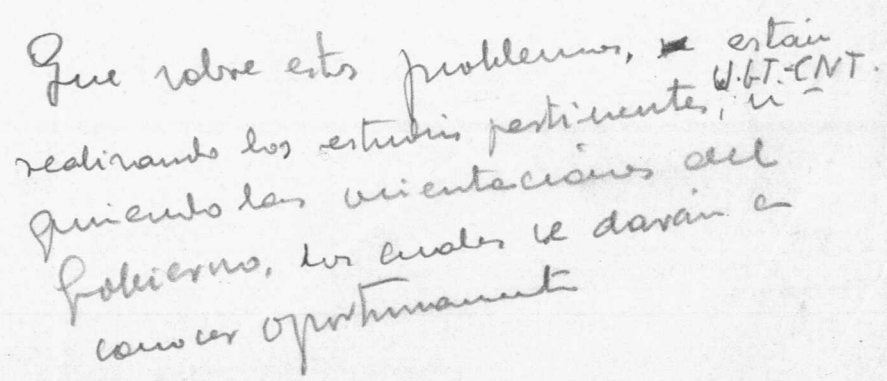 Que sobre estos problemas, se están
U.G.T.-CNT.
realizando los estudios pertinentes, si-
guiendo las orientaciones del
Gobierno, los cuales se darán a
conocer oportunamente